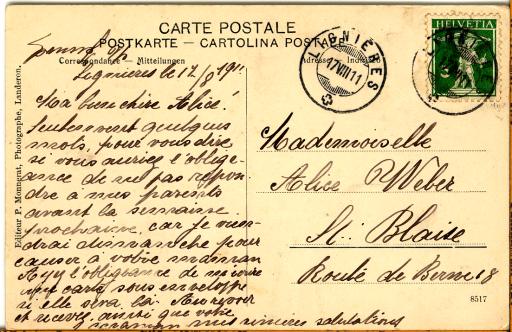 CARTE POSTALE
POSTKARTE — CARTOLINA POSTALE
Correspondance — Mitteilungen
Adresse — Indi
Lignières le 17/8 1911
Ma bien chère Alice.
Seulement quelques
mots, pour vous dire
si vous auriez l'oblige-
ance de ne pas répon-
dre à mes parents
avant la semaine
prochaine, car je vien-
drai dimanche pour
causer à votre maman
Ayez l'obligeance de
carte sous enveloppe
si elle sera là. Au revoir
et recevez, ainsi que votre
maman mes sincères salutations
Mademoiselle
Alice Weber
St. Blaise
Route de Berne 8
LIGNIÈRES
17.VIII.11
HELVETIA
5
Editeur P. Monnerat, Photographe, Landeron.
8517